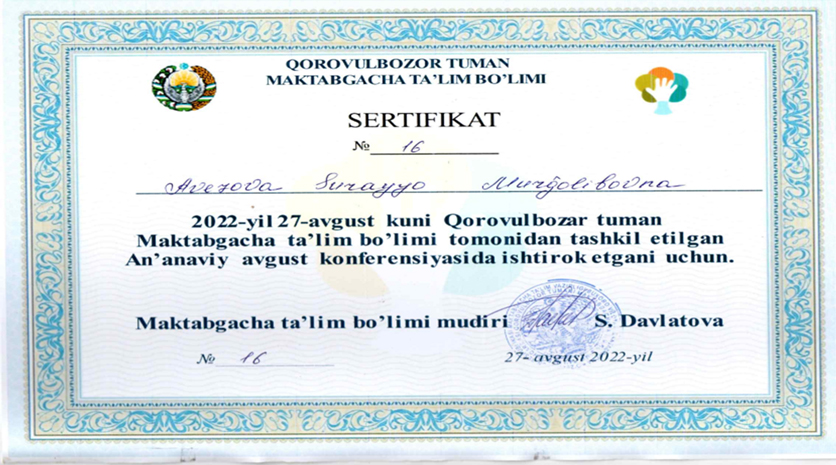 QOROVULBOZOR TUMAN
MAKTABGACHA TA’LIM BO’LIMI
SERTIFIKAT
№ 16
Avezova Surayyo Murğolibovna
2022-yil 27-avgust kuni Qorovulbozar tuman
Maktabgacha ta’lim bo’limi tomonidan tashkil etilgan
An’anaviy avgust konferensiyasida ishtirok etgani uchun.
Maktabgacha ta’lim bo’limi mudiri S. Davlatova
№ 16 27- avgust 2022-yil